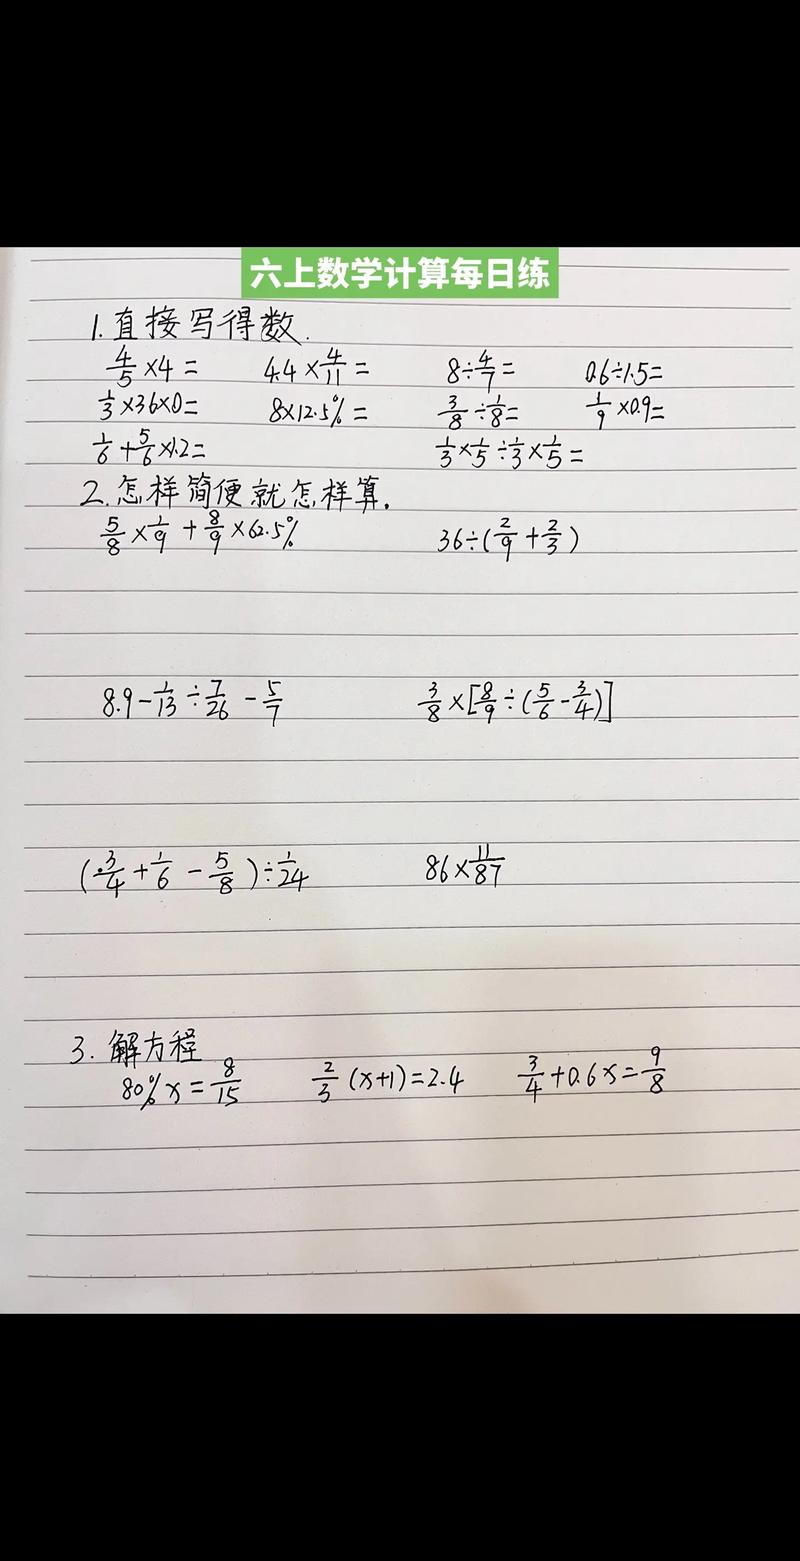 六上数学计算每日练
1.直接写得数.
4/5×4= 4.4×4/11= 8÷4/7= 0.6÷1.5=
1/3×36×0= 8×12.5%= 3/8÷1/8= 1/9×0.9=
1/6+5/6×1.2= 1/3×1/5÷1/3×1/5=
2.怎样简便就怎样算.
5/8×1/9+8/9×62.5% 36÷(2/9+2/3)
8.9-1/13÷7/26-5/7 3/8×[8/9÷(5/6-3/4)]
(3/4+1/6-5/8)÷1/24 86×11/87
3.解方程
80%x=8/15 2/3(x+1)=2.4 3/4+0.6x=9/8